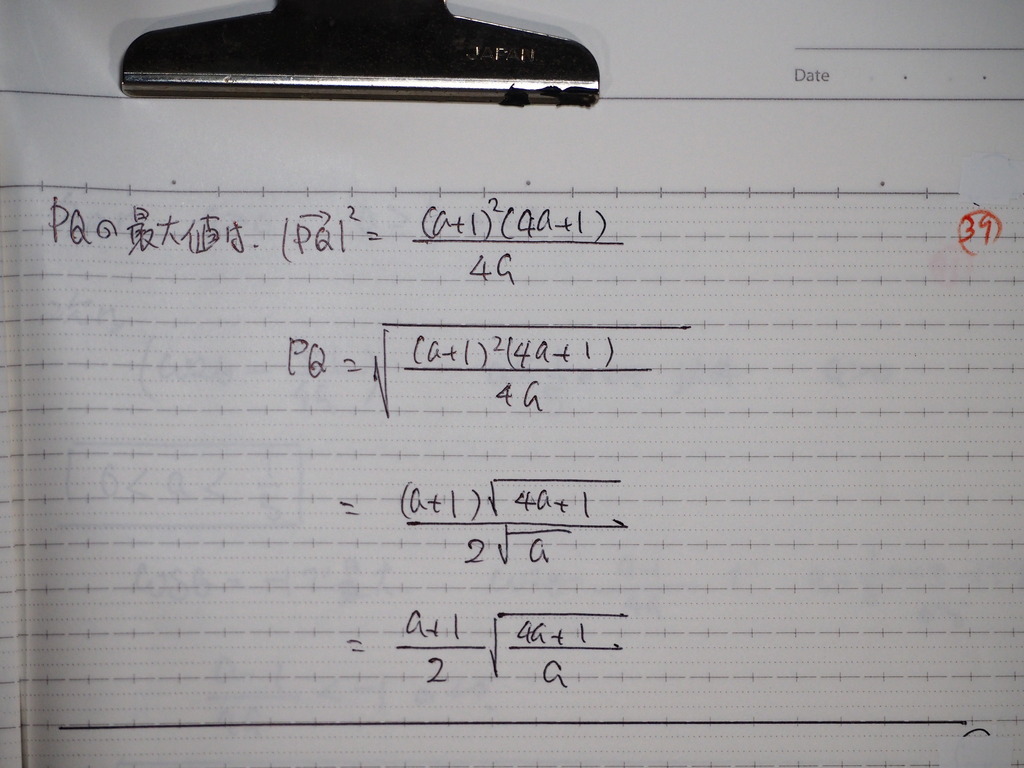 JAPAN
Date
PQの最大値は. |PQ→|² = (a+1)²(4a+1) / 4a
39
PQ = √((a+1)²(4a+1) / 4a)
= (a+1)√(4a+1) / 2√a
= a+1 / 2 √(4a+1 / a)